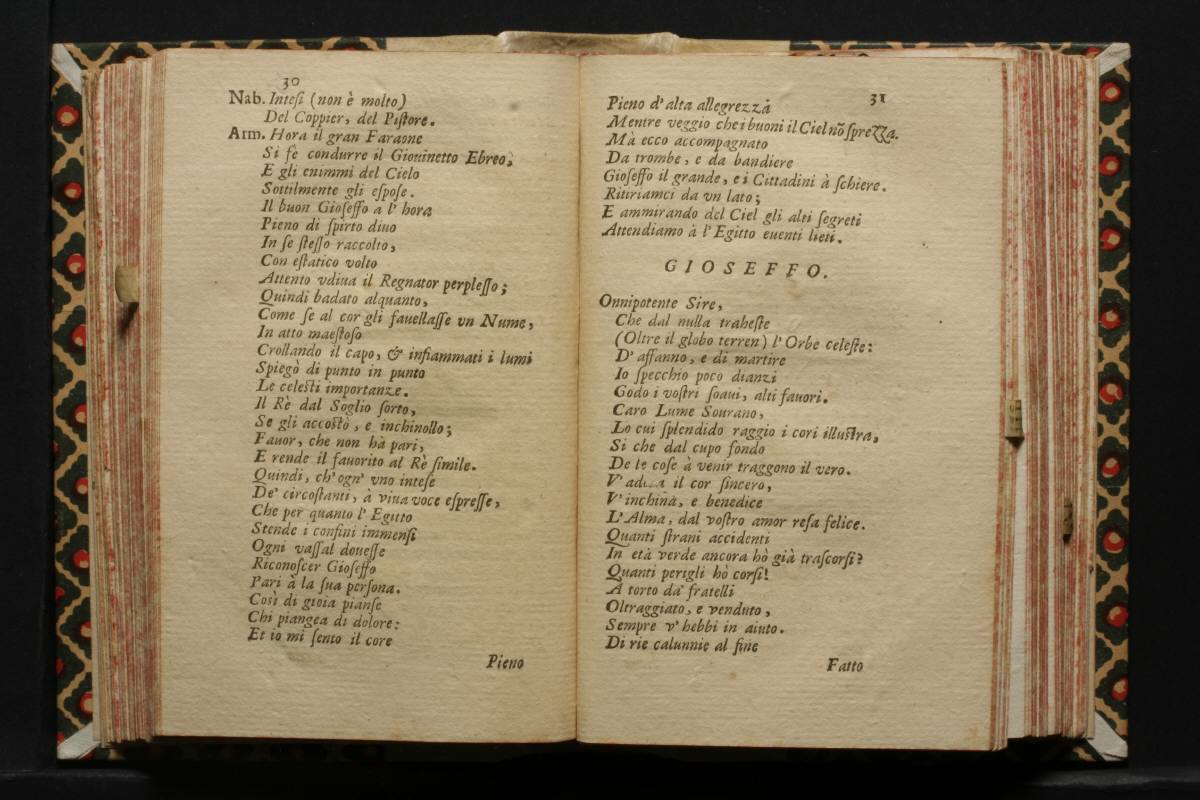 30
Nab. Intesi (non è molto)
Del Coppier, del Pistore.
Arm. Hora il gran Faraone
Si fè condurre il Giouinetto Ebreo,
E gli enimmi del Cielo
Sottilmente gli espose.
Il buon Gioseffo a l' hora
Pieno di spirto diuo
In se stesso raccolto,
Con estatico volto
Attento vdiua il Regnator perplesso;
Quindi badato alquanto,
Come se al cor gli fauellasse vn Nume,
In atto maestoso
Crollando il capo, & infiammati i lumi
Spiegò di punto in punto
Le celesti importanze.
Il Rè dal Soglio sorto,
Se gli accostò, e inchinollo;
Fauor, che non hà pari,
E rende il fauorito al Rè simile.
Quindi, ch' ogn' vno intese
De' circostanti, à viua voce espresse,
Che per quanto l' Egitto
Stende i confini immensi
Ogni vassal douesse
Riconoscer Gioseffo
Pari à la sua persona.
Così di gioia pianse
Chi piangea di dolore:
Et io mi sento il core
Pieno
31
Pieno d' alta allegrezza
Mentre veggio che i buoni il Ciel nõ sprezza.
Mà ecco accompagnato
Da trombe, e da bandiere
Gioseffo il grande, e i Cittadini à schiere.
Ritiriamci da vn lato;
E ammirando del Ciel gli alti segreti
Attendiamo à l' Egitto euenti lieti.
GIOSEFFO.
Onnipotente Sire,
Che dal nulla traheste
(Oltre il globo terren) l' Orbe celeste:
D' affanno, e di martire
Io specchio poco dianzi
Godo i vostri soaui, alti fauori.
Caro Lume Sourano,
Lo cui splendido raggio i cori illustra,
Si che dal cupo fondo
De le cose à venir traggono il vero.
V' il cor sincero,
V' inchina, e benedice
L' Alma, dal vostro amor resa felice.
Quanti strani accidenti
In età verde ancora hò già trascorsi?
Quanti perigli hò corsi!
A torto da' fratelli
Oltraggiato, e venduto,
Sempre v' hebbi in aiuto.
Di rie calunnie al fine
Fatto